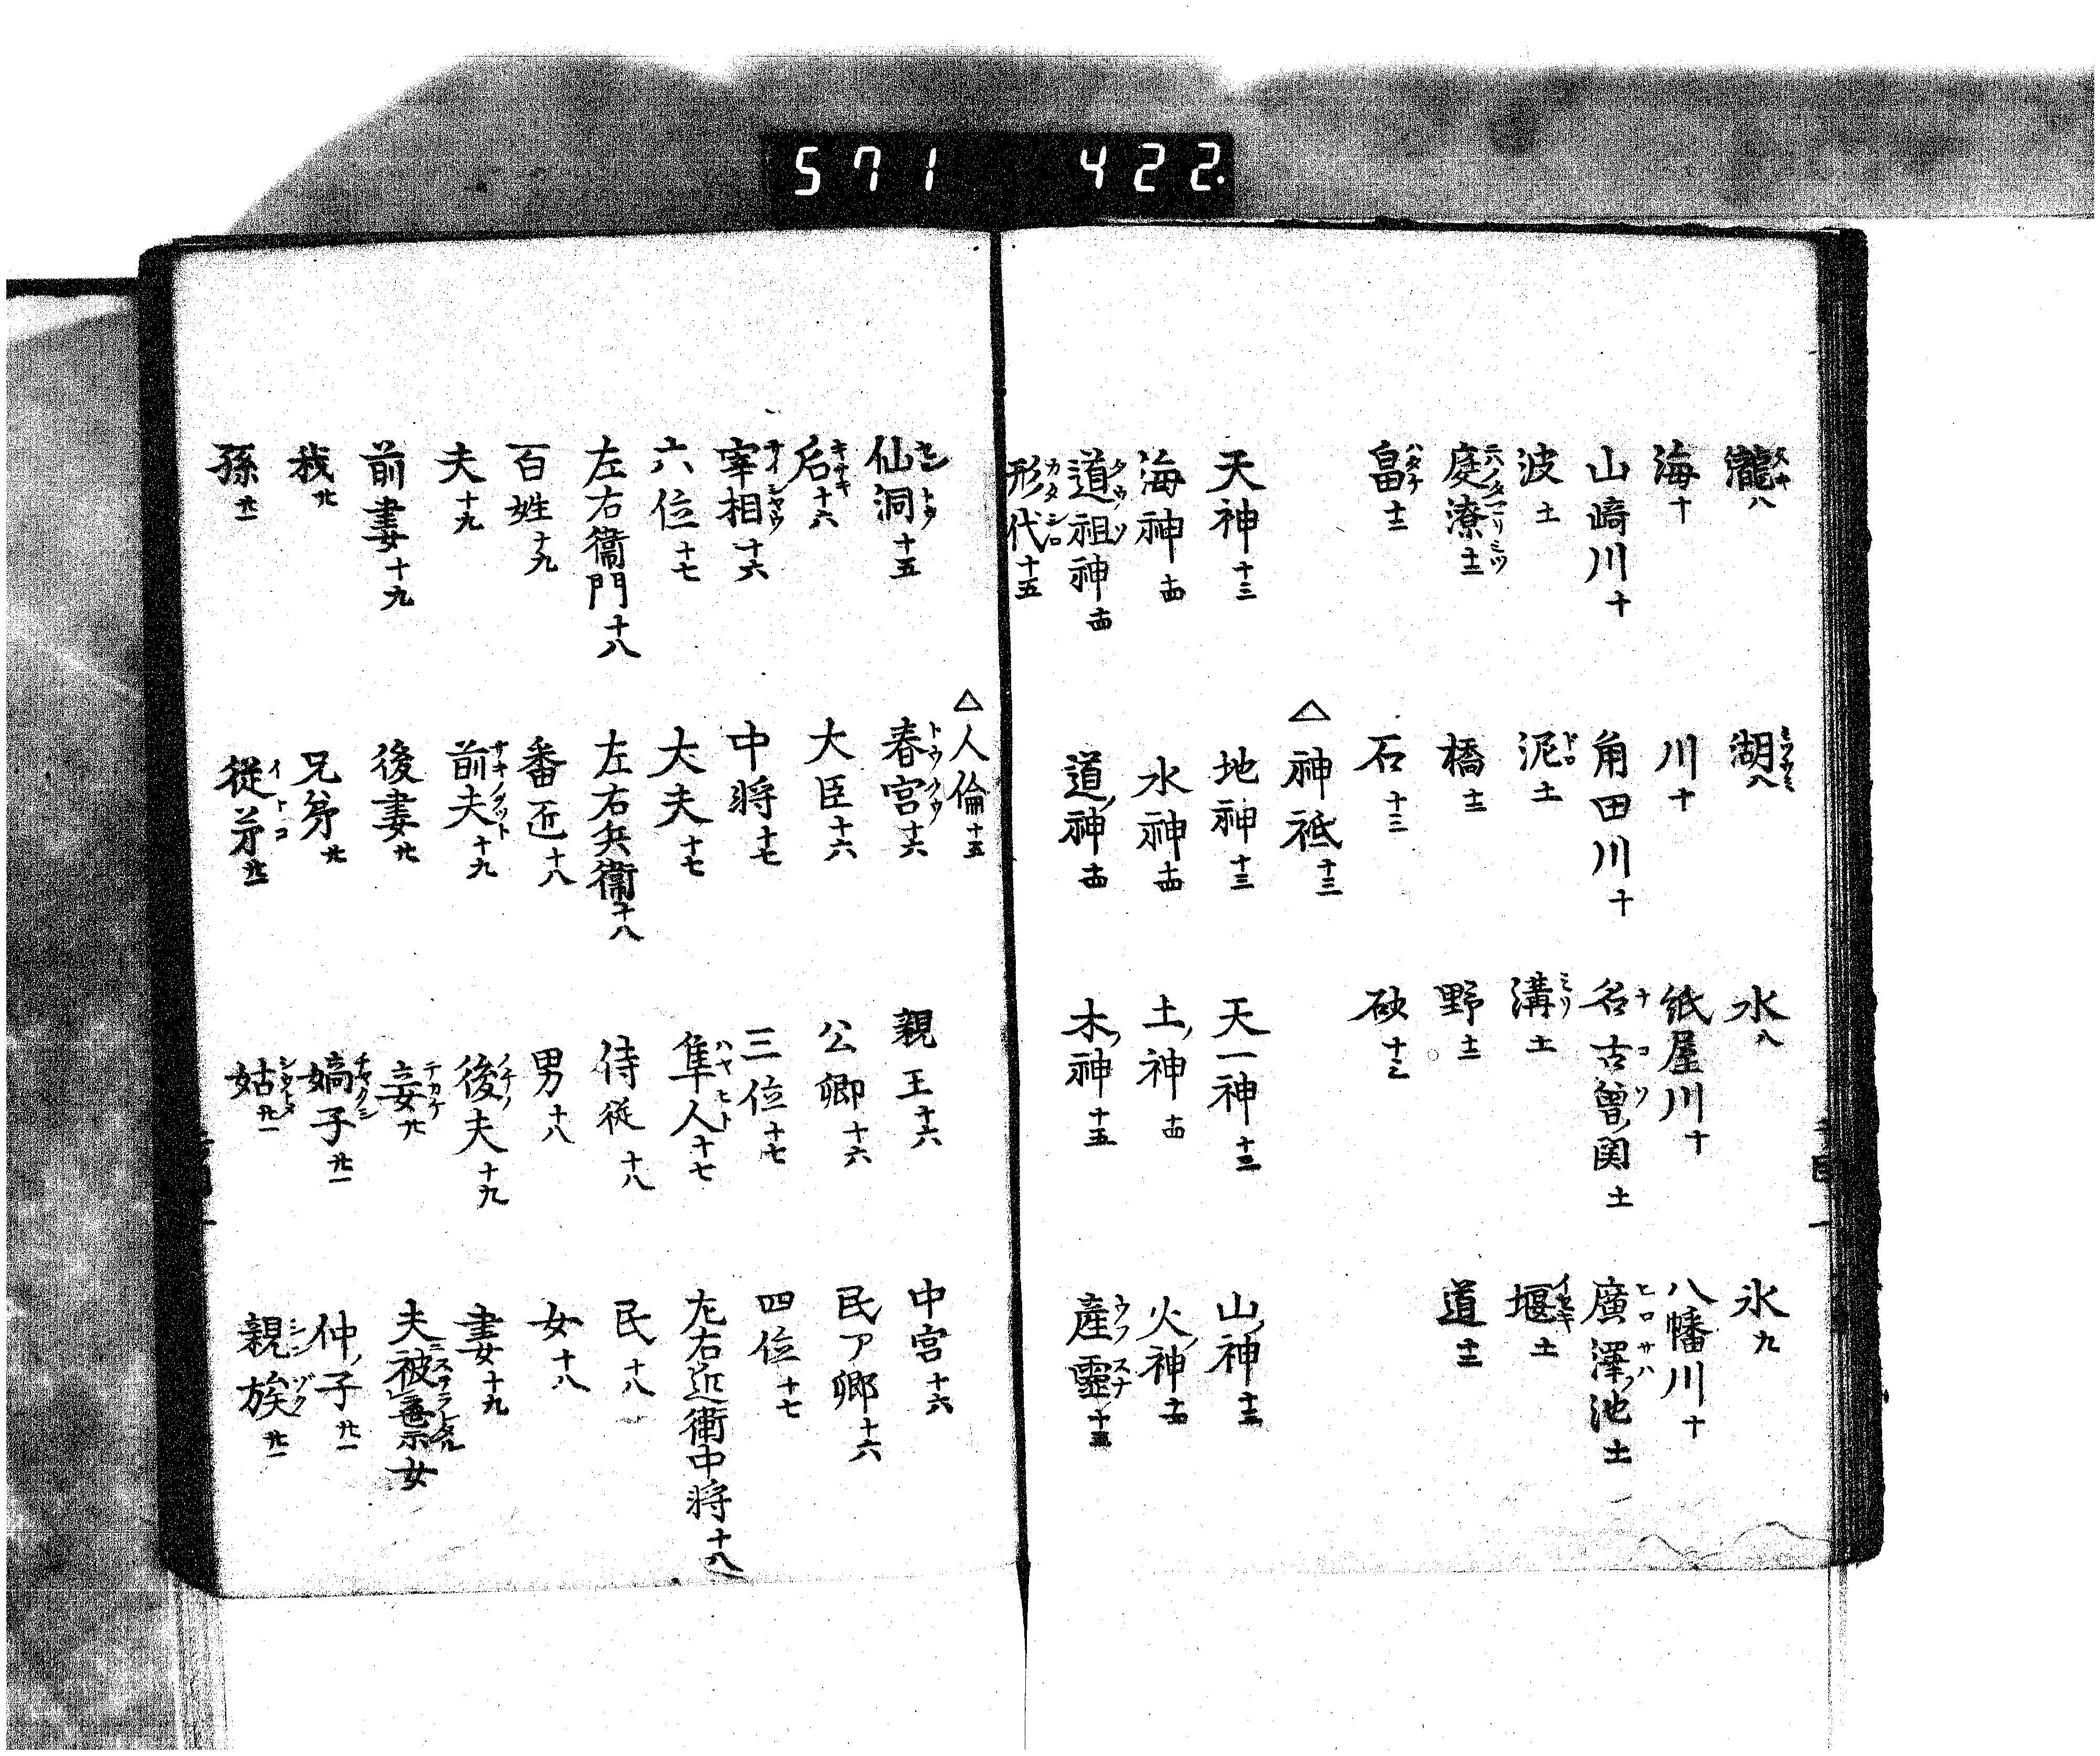 571 422.
瀧八 湖八 水八 氷九
海十 川十 紙屋川十 八幡川十
山﨑川十 角田川十 名古曽ノ関十一 廣澤ノ池十一
波十一 泥十一 溝十一 堰十一
庭潦十二 橋十二 野十二 道十二
畠十二 石十三 砍十三
△神祇十三
天神十三 地神十三 天一神十三 山ノ神十三
海神十四 水神十四 土ノ神十四 火ノ神十四
道祖神十四 道ノ神十四 木ノ神十五 産靈十五
形代十五
△人倫十五
仙洞十五 春宮十六 親王十六 中宮十六
后十六 大臣十六 公卿十六 民ア卿十六
宰相十六 中将十七 三位十七 四位十七
六位十七 大夫十七 隼人十七 左右近衛中将十八
左右衛門十八 左右兵衛十八 侍従十八 民十八
百姓十九 番匠十八 男十八 女十八
夫十九 前夫十九 後夫十九 妻十九
前妻十九 後妻廿 妾廿 夫被棄女
我廿 兄弟廿 嫡子廿一 仲ノ子廿一
孫廿一 従弟廿一 姑廿一 親族廿一